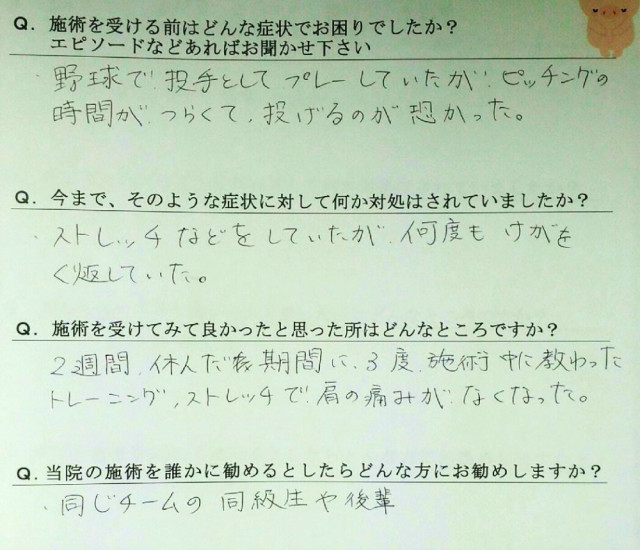 Q. 施術を受ける前はどんな症状でお困りでしたか？
エピソードなどあればお聞かせ下さい
・野球で投手としてプレーしていたが、ピッチングの
時間がつらくて、投げるのが恐かった。
Q. 今まで、そのような症状に対して何か対処はされていましたか？
・ストレッチなどをしていたが、何度もけがを
くり返していた。
Q. 施術を受けてみて良かったと思った所はどんなところですか？
2週間、休んだ期間に、3度、施術中に教わった
トレーニング、ストレッチで肩の痛みがなくなった。
Q. 当院の施術を誰かに勧めるとしたらどんな方にお勧めしますか？
・同じチームの同級生や後輩